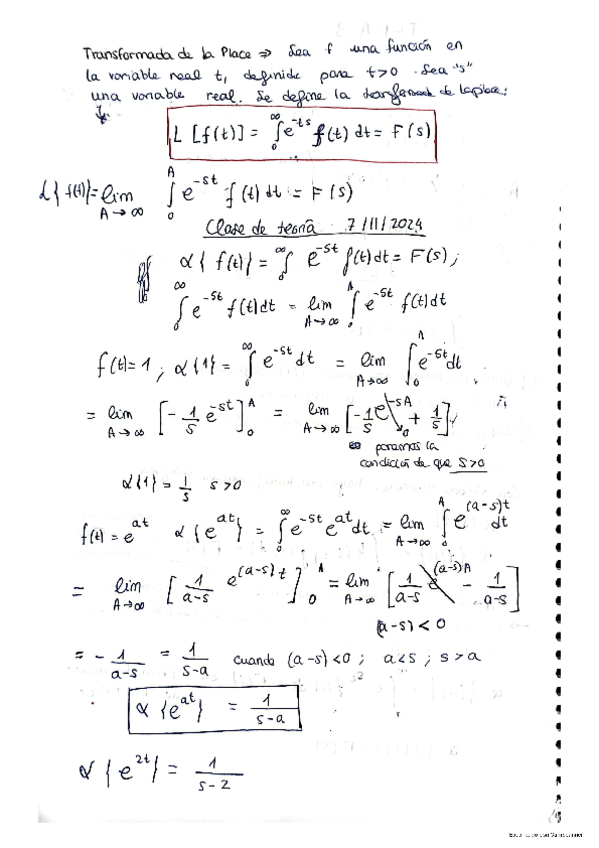 Transformada de la Place ⇒ Sea f una función en
la variable real t, definida para t>0. Sea "s"
una variable real. Se define la transformada de Laplace:
L [f(t)] = ∫₀^∞ e^{-ts} f(t) dt = F(s)
L{f(t)} = lim_{A→∞} ∫₀^A e^{-st} f(t) dt = F(s)
Clase de teoría 7/11/2024
L{f(t)} = ∫₀^∞ e^{-st} f(t) dt = F(s);
∫₀^∞ e^{-st} f(t) dt = lim_{A→∞} ∫₀^A e^{-st} f(t) dt
f(t)=1; L{1} = ∫₀^∞ e^{-st} dt = lim_{A→∞} ∫₀^A e^{-st} dt
= lim_{A→∞} [-1/s e^{-st}]₀^A = lim_{A→∞} [-1/s e^{-sA} + 1/s]
0
ponemos la
condición de que s>0
L{1} = 1/s s>0
f(t) = e^{at} L{e^{at}} = ∫₀^∞ e^{-st} e^{at} dt = lim_{A→∞} ∫₀^A e^{(a-s)t} dt
= lim_{A→∞} [1/(a-s) e^{(a-s)t}]₀^A = lim_{A→∞} [1/(a-s) e^{(a-s)A} - 1/(a-s)]
(a-s) < 0
= - 1/(a-s) = 1/(s-a) cuando (a-s)<0; a<s; s>a
L{e^{at}} = 1/(s-a)
L{e^{2t}} = 1/(s-2)